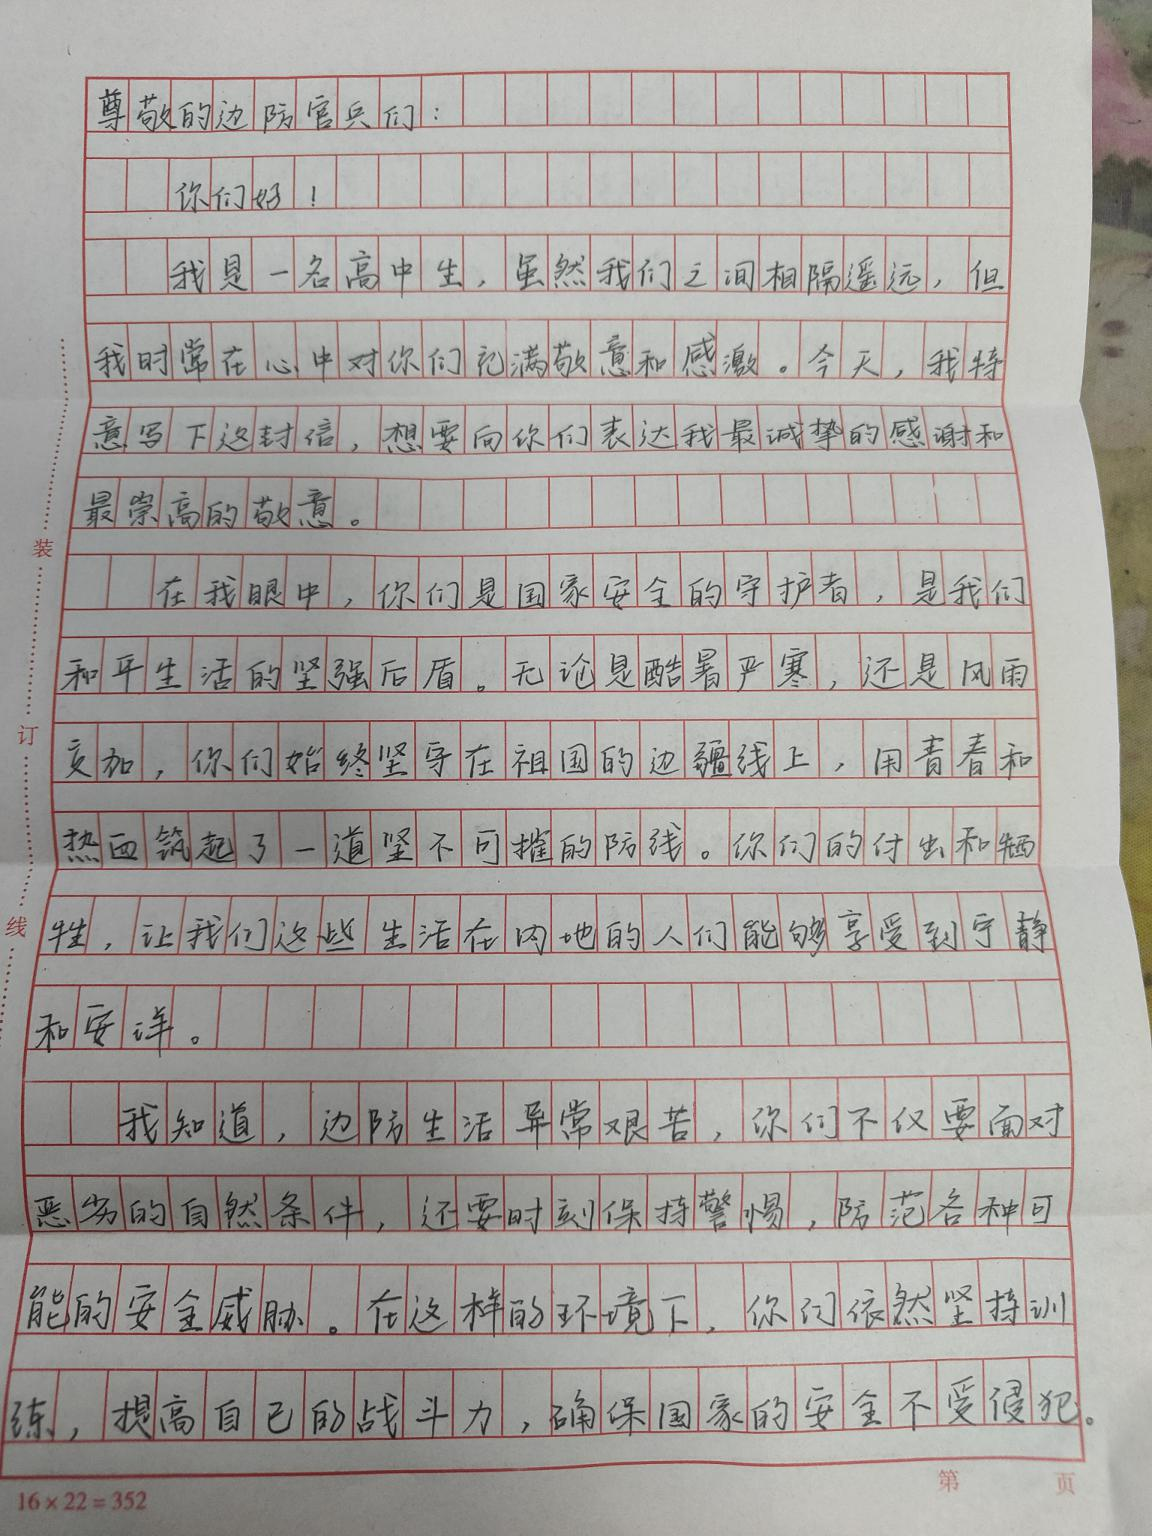 尊敬的边防官兵们：
你们好！
我是一名高中生，虽然我们之间相隔遥远，但
我时常在心中对你们充满敬意和感激。今天，我特
意写下这封信，想要向你们表达我最诚挚的感谢和
最崇高的敬意。
在我眼中，你们是国家安全的守护者，是我们
和平生活的坚强后盾。无论是酷暑严寒，还是风雨
交加，你们始终坚守在祖国的边疆线上，用青春和
热血筑起了一道坚不可摧的防线。你们的付出和牺
牲，让我们这些生活在内地的人们能够享受到宁静
和安详。
我知道，边防生活异常艰苦，你们不仅要面对
恶劣的自然条件，还要时刻保持警惕，防范各种可
能的安全威胁。在这样的环境下，你们依然坚持训
练，提高自己的战斗力，确保国家的安全不受侵犯。
装
订
线
16×22=352
第 页